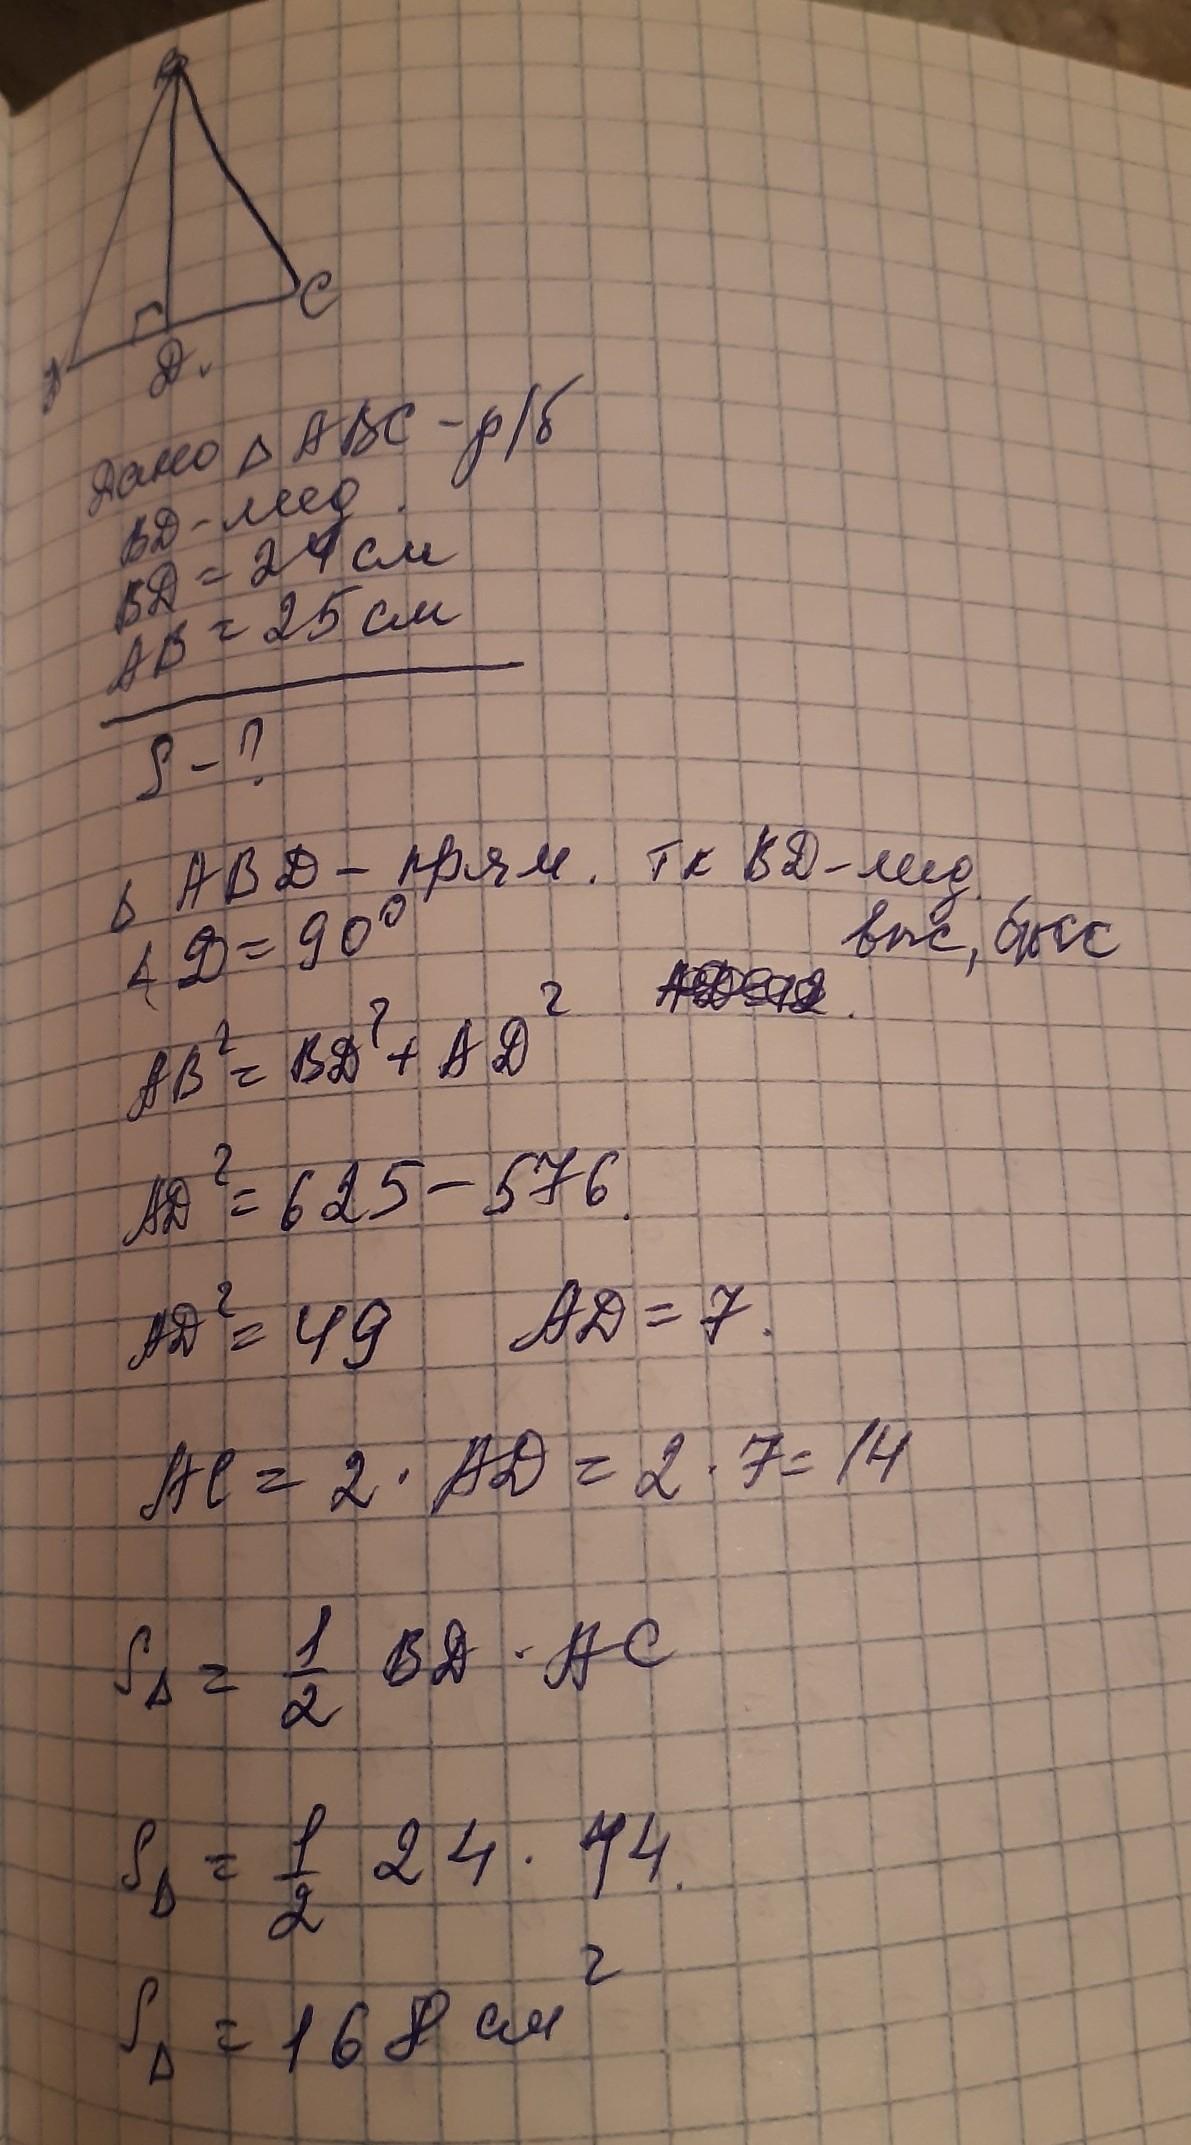 B
C
A
D.
Дано △ ABC - р/б
BD - мед.
BD = 24 см
AB = 25 см
S - ?
△ ABD - прям. тк BD - мед.
∠ D = 90° выс, бисс
AB² = BD² + AD²
AD² = 625 - 576.
AD² = 49 AD = 7.
AC = 2 · AD = 2 · 7 = 14
S△ = 1/2 BD · AC
S△ = 1/2 24 · 14.
S△ = 168 см²